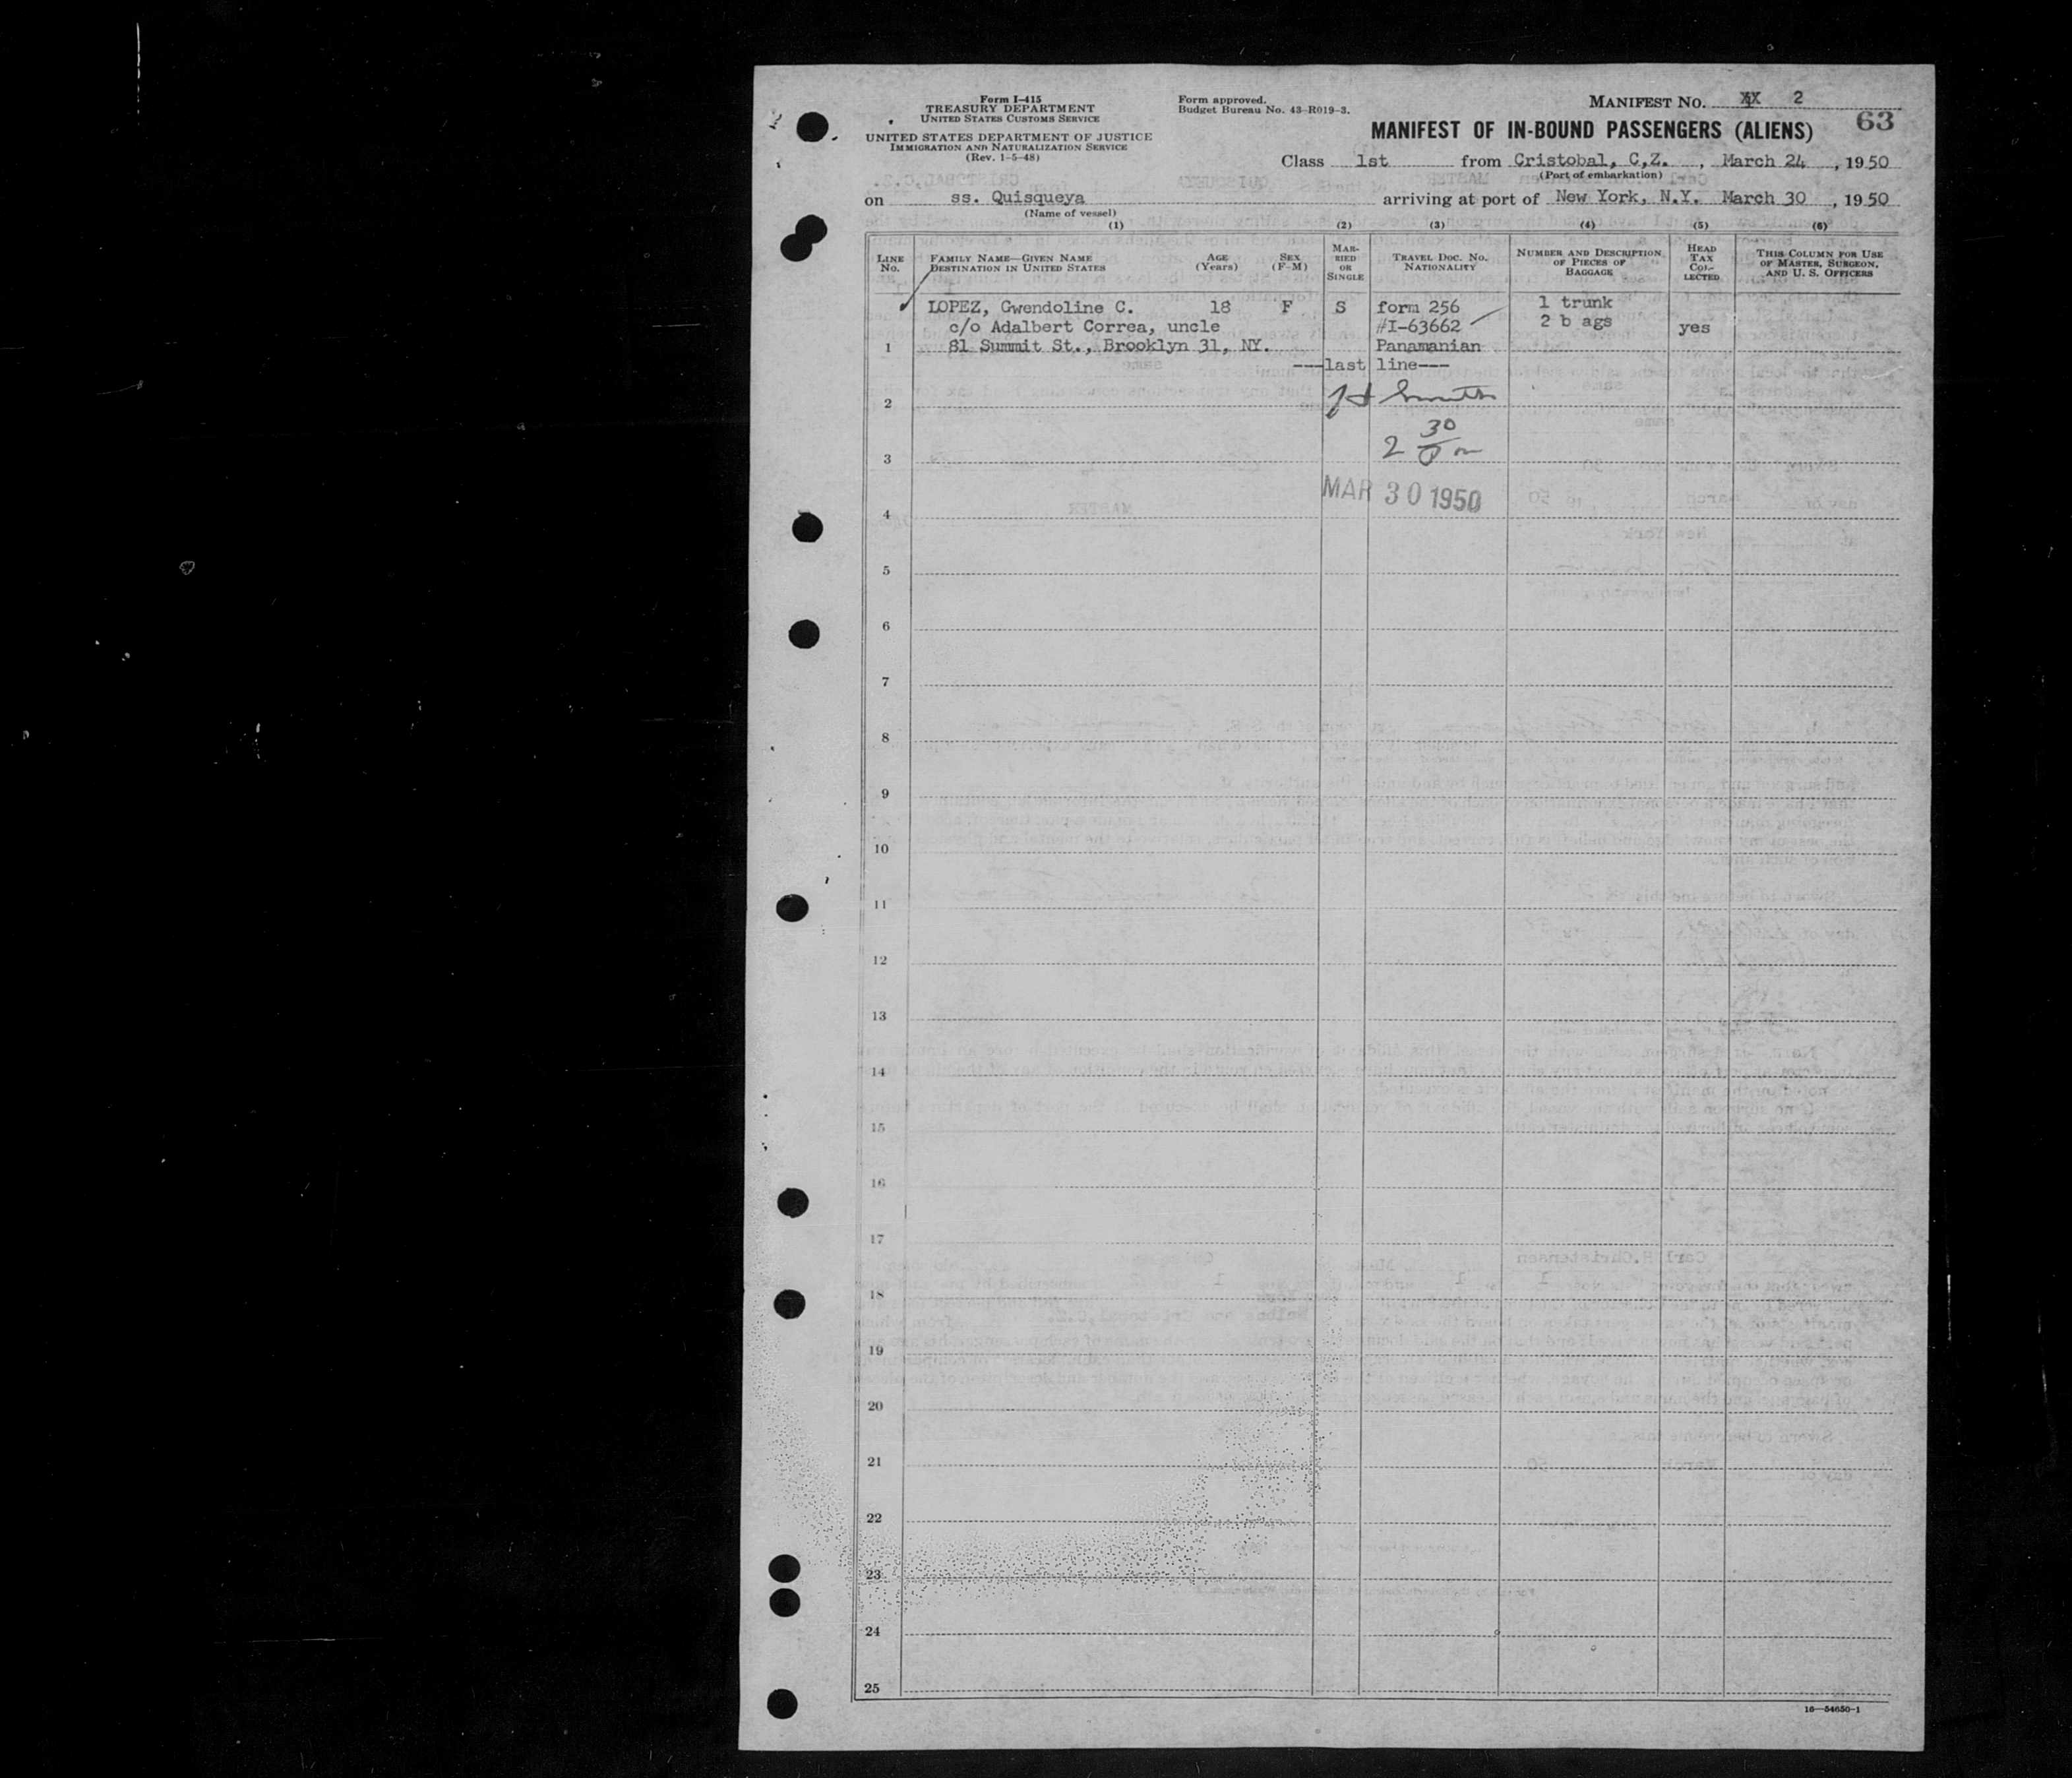 Form I-415
TREASURY DEPARTMENT
UNITED STATES CUSTOMS SERVICE
UNITED STATES DEPARTMENT OF JUSTICE
IMMIGRATION AND NATURALIZATION SERVICE
(Rev. 1-5-48)
Form approved.
Budget Bureau No. 43-R019-3.
MANIFEST NO. 2
63
MANIFEST OF IN-BOUND PASSENGERS (ALIENS)
Class 1st from Cristobal, C,Z. , March 24 , 1950
(Port of embarkation)
on ss. Quisqueya arriving at port of New York, N.Y. March 30 , 1950
(Name of vessel)
(1) (2) (3) (4) (5) (6)
LINE NO.
FAMILY NAME—GIVEN NAME
DESTINATION IN UNITED STATES
AGE (Years)
SEX (F-M)
MARRIED OR SINGLE
TRAVEL DOC. NO.
NATIONALITY
NUMBER AND DESCRIPTION
OF PIECES OF
BAGGAGE
HEAD TAX COLLECTED
THIS COLUMN FOR USE
OF MASTER, SURGEON,
AND U. S. OFFICERS
LOPEZ, Gwendoline C. 18 F S form 256 1 trunk
c/o Adalbert Correa, uncle #I-63662 2 b ags yes
1 81 Summit St., Brooklyn 31, NY. Panamanian
---last line---
2 Smith
3 2 30
MAR 30 1950
4
5
6
7
8
9
10
11
12
13
14
15
16
17
18
19
20
21
22
23
24
25
16—54650-1